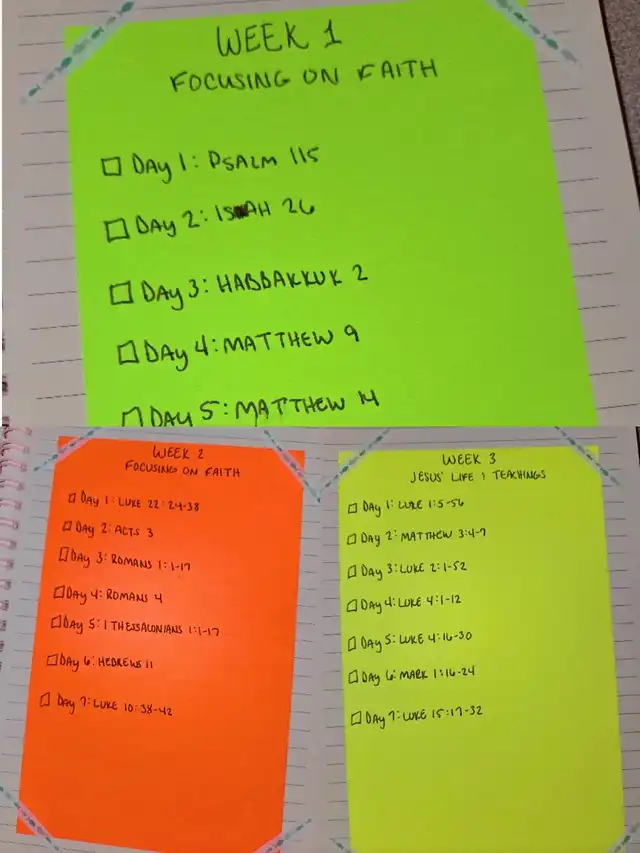 WEEK 1
FOCUSING ON FAITH
DAY 1: PSALM 115
DAY 2: ISAH 26
DAY 3: HABBAKKUK 2
DAY 4: MATTHEW 9
DAY 5: MATTHEW 14
WEEK 2
FOCUSING ON FAITH
DAY 1: LUKE 22:24-38
DAY 2: ACTS 3
DAY 3: ROMANS 1:1-17
DAY 4: ROMANS 4
DAY 5: 1 THESSALONIANS 1:1-17
DAY 6: HEBREWS 11
DAY 7: LUKE 10:38-42
WEEK 3
JESUS' LIFE & TEACHINGS
DAY 1: LUKE 1:5-56
DAY 2: MATTHEW 3:4-7
DAY 3: LUKE 2:1-52
DAY 4: LUKE 4:1-12
DAY 5: LUKE 4:16-30
DAY 6: MARK 1:16-24
DAY 7: LUKE 15:17-32